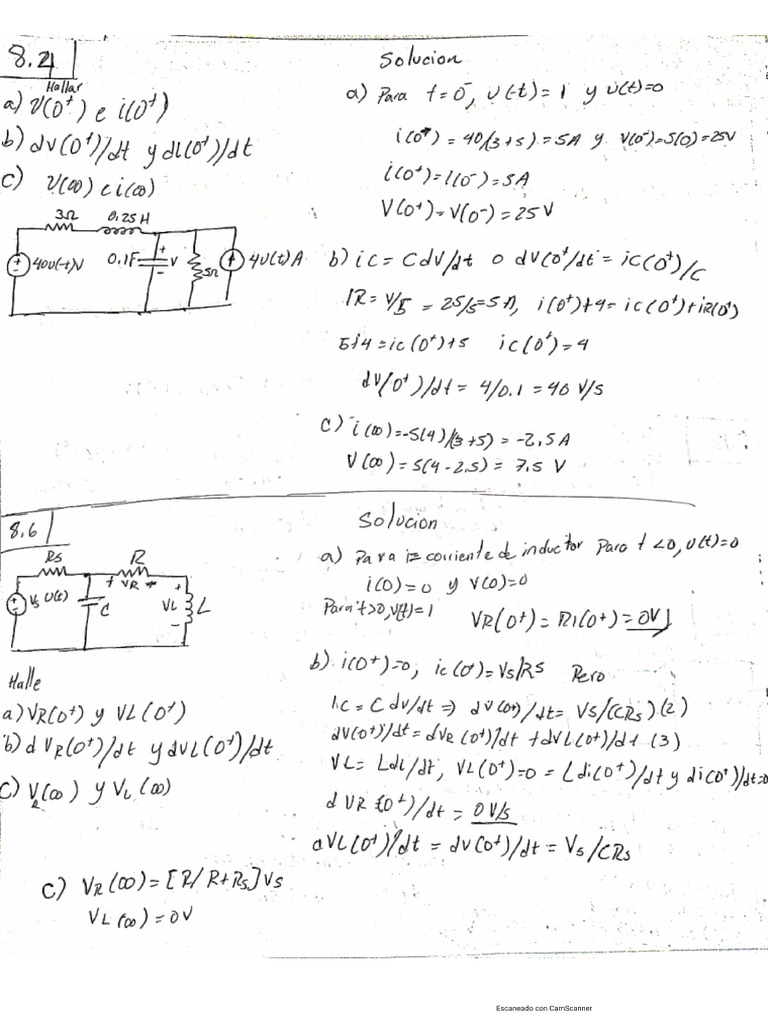 8.4
Hallar
a) V(0⁺) e i(0⁺)
b) dv(0⁺)/dt y di(0⁺)/dt
c) V(∞) e i(∞)
3Ω 0.25H
40u(-t)V 0.1F + V - 5Ω 4u(t)A
Solucion
a) Para t=0⁻, u(-t)=1 y u(t)=0
i(0⁻) = 40/(3+5) = 5A y V(0⁻)=5(0)=25V
i(0⁺)=i(0⁻)=5A
V(0⁺)=V(0⁻)=25 V
b) ic = C dV/dt o dV(0⁺)/dt = ic(0⁺)/C
iR = V/5 = 25/5=5A, i(0⁺)+4= ic(0⁺)+iR(0⁺)
5+4=ic(0⁺)+5 ic(0⁺)=4
dv(0⁺)/dt = 4/0.1 = 40 V/s
c) i(∞)=-5(4)/(3+5) = -2,5A
V(∞)=5(4-2.5) = 7.5 V
8.6
Rs R
Vs u(t) C + VR + VL - L
Halle
a) VR(0⁺) y VL(0⁺)
b) d VR(0⁺)/dt y dVL(0⁺)/dt
c) VR(∞) y VL(∞)
Solucion
a) Para i= corriente de inductor Para t<0, u(t)=0
i(0)=0 y V(0)=0
Para t>0, u(t)=1
VR(0⁺) = Ri(0⁺)=0V
b) i(0⁺)=0, ic(0⁺)=Vs/Rs Pero
ic = C dv/dt ⇒ dv(0⁺)/dt= Vs/(CRs) (2)
dv(0⁺)/dt=dVR(0⁺)/dt +dVL(0⁺)/dt (3)
VL= Ldi/dt, VL(0⁺)=0 = Ldi(0⁺)/dt y di(0⁺)/dt=0
d VR(0⁺)/dt= 0 V/s
dVL(0⁺)/dt = dv(0⁺)/dt = Vs/CRs
c) VR(∞) = [R/R+Rs]Vs
VL(∞)=0V
Escaneado con CamScanner